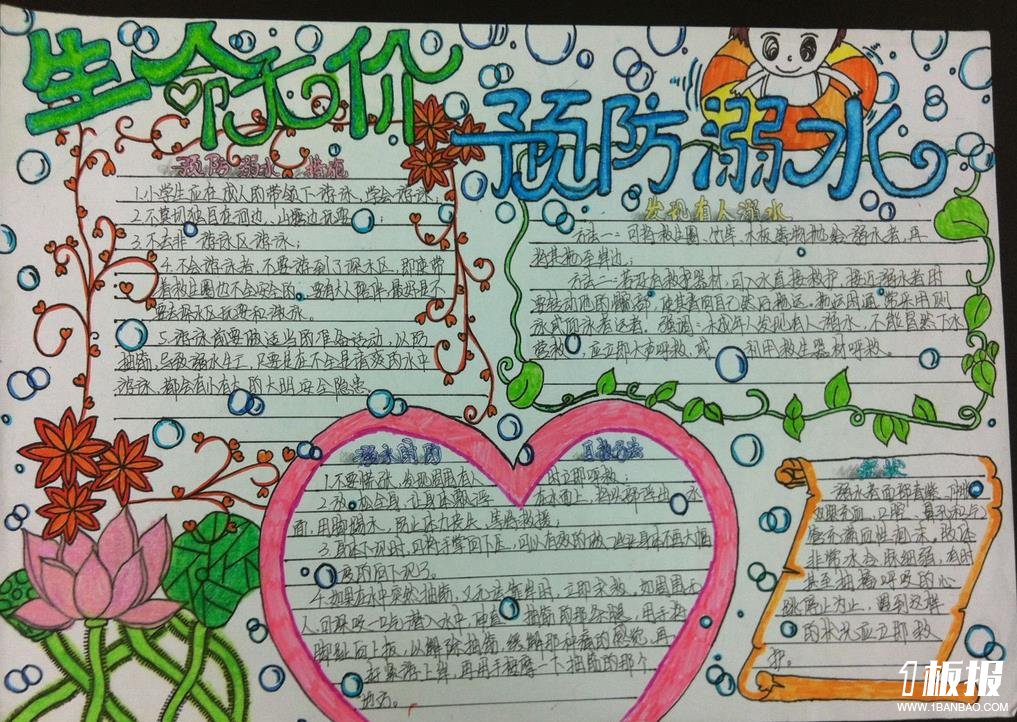 生命无价
预防溺水
预防溺水措施
1.小学生应在成人的带领下游泳,学会游泳;
2.不要独自在河边、山塘边玩耍;
3.不去非游泳区游泳;
4.不会游泳者,不要游到了深水区,即使带
着救生圈也不会安全的。要有大人陪伴
要去深水区玩耍和游泳。
5.游泳前要做适当的准备活动,以防
抽筋,
游泳,都会有
安全隐患
发现有人溺水
方法一:可将救生圈、竹竿、木板等物抛给溺水者,再
将其拖至岸边;
方法二:若没有救护器材,可入水直接救护。接近溺水者时
要转动他的髋部,使其背向自己然后拖运。拖运时通常采用侧
泳或仰泳拖运法。强调:未成年人发现有人溺水,不能冒然下水
营救,应立即大声呼救,或利用救生器材呼救。
溺水时的自救方法
1.不要慌张,发现周围有人时立即呼救;
2.放松全身,让身体飘浮在水面上,将头部浮出水
面,用脚踢水,防止体力丧失,等待救援;
3.身体下沉时,可将手掌向下压,
4.如果在水中突然抽筋,又无法靠岸时,立即求救。如周围无
人,可深吸一口气潜入水中,伸直抽筋的那条腿,用手将
脚趾向上扳,以解除抽筋。
再用手按摩一下抽筋的那个
地方。
症状
溺水者面部青紫、
双眼充血,口腔、鼻孔和气
管充满血性泡沫。肢体
非常冰冷,脉细弱,有时
甚至抽搐,呼吸的心
跳停止为止,遇到这样
的状况应立即救
护。
1板报
WWW.1BANBAO.COM